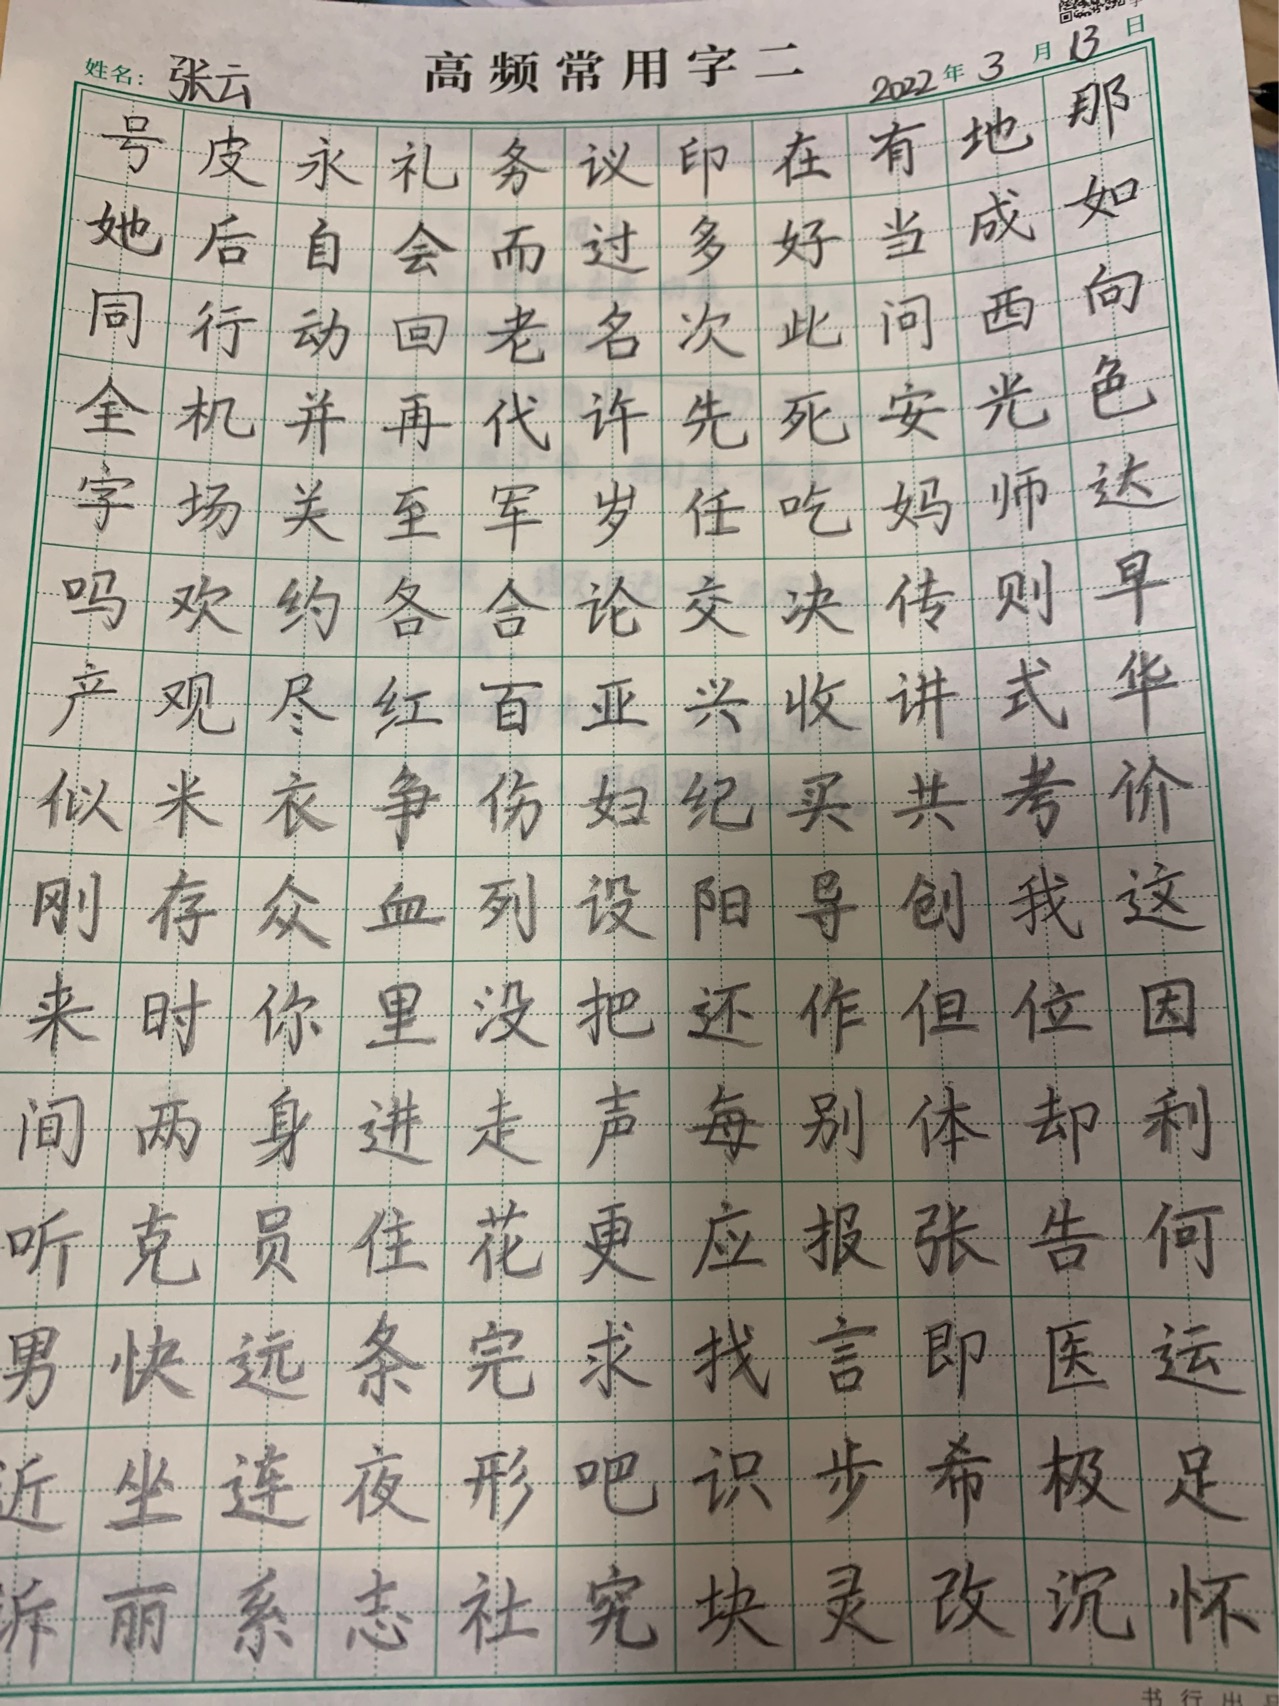 姓名：张云 高频常用字二 2022年3月13日
号皮永礼务议印在有地那
她后自会而过多好当成如
同行动回老名次此问西向
全机并再代许先死安光色
字场关至军岁任吃妈师达
吗欢约各合论交决传则早
产观尽红百亚兴收讲式华
似米衣争伤妇纪买共考价
刚存众血列设阳导创我这
来时你里没把还作但位因
间两身进走声每别体却利
听克员住花更应报张告何
男快远条完求找言即医运
近坐连夜形吧识步希极足
诉丽系志社究块灵改沉怀
书行出